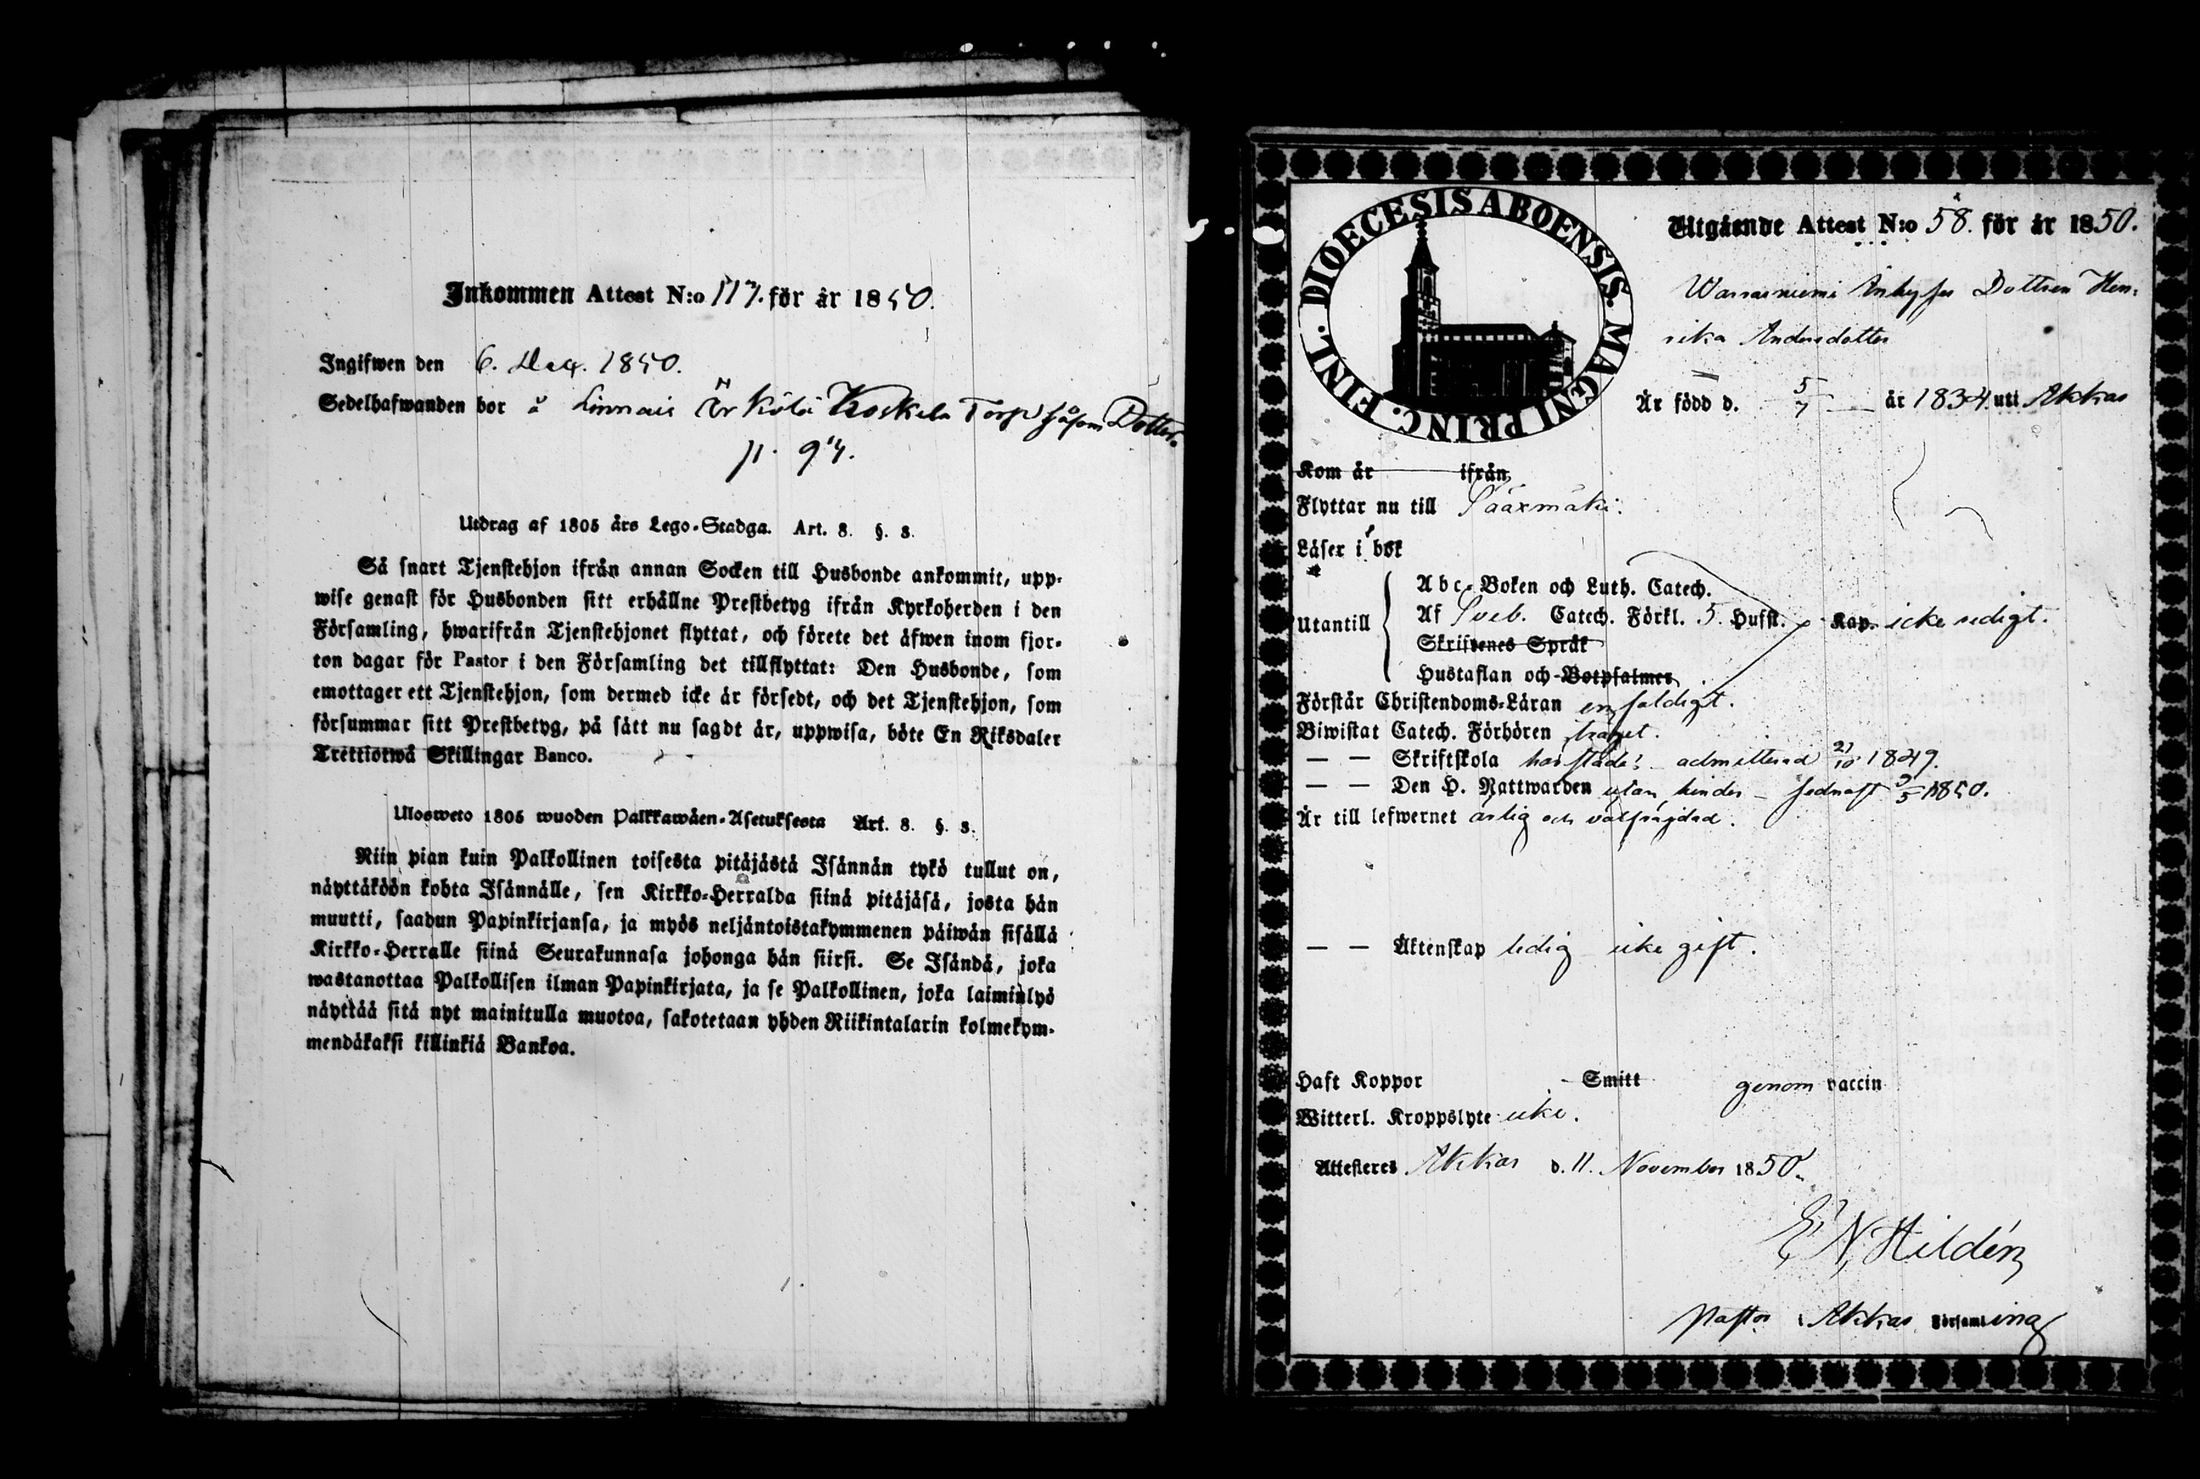 Inkommen Attest N:o 117. för år 1850.
Ingifwen den 6. Dec. 1850.
Sedelhafwanden bor å Linnais Koskela Torp såsom Dotter.
p. 94.
Utdrag af 1805 års Lego-Stadga. Art. 8. §. 3.
Så snart Tjenstehjon ifrån annan Socken till Husbonde ankommit, upp-
wise genast för Husbonden sitt erhållne Prestbetyg ifrån Kyrkoherden i den
Församling, hwarifrån Tjenstehjonet flyttat, och förete det äfwen inom fjor-
ton dagar för Pastor i den Församling det tillflyttat: Den Husbonde, som
emottager ett Tjenstehjon, som dermed icke är försedt, och det Tjenstehjon, som
försummar sitt Prestbetyg, på sätt nu sagdt är, uppwisa, böte En Riksdaler
Trettiotwå Skillingar Banco.
Ulosweto 1805 wuoden Palkkawäen-Asetuksesta Art. 8. §. 3.
Niin pian kuin Palkollinen toisesta pitäjästä Isännän tykö tullut on,
näyttäköön kohta Isännälle, sen Kirkko-Herralda siinä pitäjäsä, josta hän
muutti, saadun Papinkirjansa, ja myös neljäntoistakymmenen päiwän sisällä
Kirkko-Herralle siinä Seurakunnasa johonga hän siirsi. Se Isändä, joka
wastanottaa Palkollisen ilman Papinkirjata, ja se Palkollinen, joka laiminlyö
näyttää sitä nyt mainitulla muotoa, sakotetaan yhden Riikintalarin kolmekym-
mendäkaksi killinkiä Bankoa.
DIOECESIS ABOENSIS. MAGNI PRINC. FINL.
Utgående Attest N:o 58. för år 1850.
Warrasniemi Inhyses Dottren Hen-
rika Andersdotter
Är född d. 5/7 år 1834 uti Akkas
Kom år ifrån
Flyttar nu till Sääxmäki.
Läser i bok
Utantill
Abc-Boken och Luth. Catech.
Af Sveb. Catech. Förkl. 5. Hufst. Kap. icke redigt.
Skriftenes Språk
Hustaflan och Botpsalmer
Förstår Christendoms-Läran enfaldigt.
Biwistat Catech. Förhören
— — Skriftskola admitterad 21/10 1849.
— — Den H. Nattwarden utan hinder – sednast 5 1850.
Är till lefwernet ärlig och välfrägdad.
— — Äktenskap ledig icke gift.
Haft Koppor Smitt genom vaccin
Witterl. Kroppslyte icke.
Attesteres Akkas d. 11. November 1850.
E N Hildén
Pastor i Akkas Församling